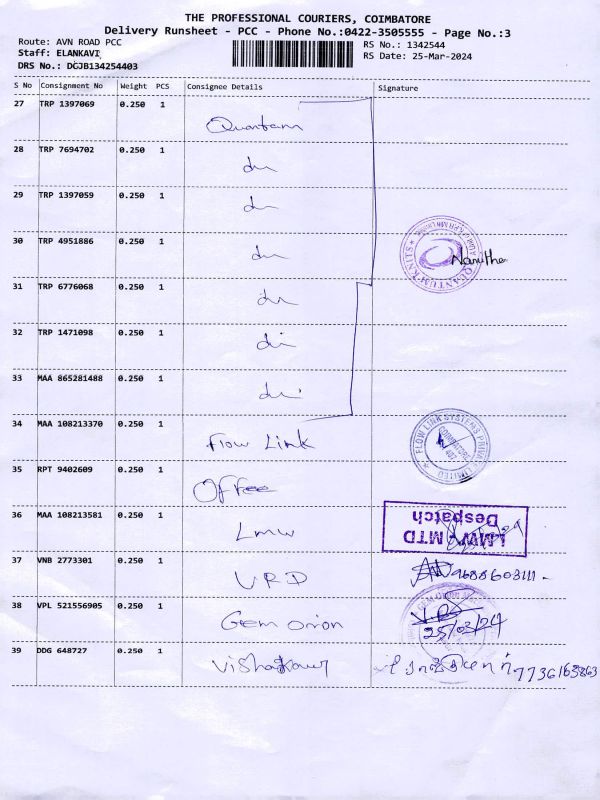 THE PROFESSIONAL COURIERS, COIMBATORE
Delivery Runsheet - PCC - Phone No.:0422-3505555 - Page No.:3
Route: AVN ROAD PCC
Staff: ELANKAVI
DRS No.: DCJB134254403
RS No.: 1342544
RS Date: 25-Mar-2024
S No Consignment No Weight PCS Consignee Details Signature
27 TRP 1397069 0.250 1 Quantam
28 TRP 7694702 0.250 1 du
29 TRP 1397059 0.250 1 du
30 TRP 4951886 0.250 1 du QUANTUM KNITS
31 TRP 6776068 0.250 1 du
32 TRP 1471098 0.250 1 du
33 MAA 865281488 0.250 1 du
34 MAA 108213370 0.250 1 Flow Link FLOW LINK SYSTEMS PRIVATE LIMITED COIMBATORE
35 RPT 9402609 0.250 1 Offee
36 MAA 108213581 0.250 1 Lmw LMW - MTD
Despatch
37 VNB 2773301 0.250 1 URD 9688603111
38 VPL 521556905 0.250 1 Gem orion
25/03/24
39 DDG 648727 0.250 1 7736163863